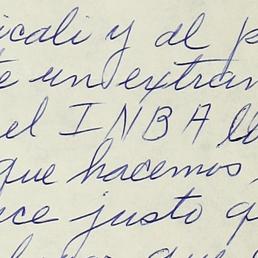 icali y al p
te un extran
el INBA lle
que hacemos,
ece justo q
que